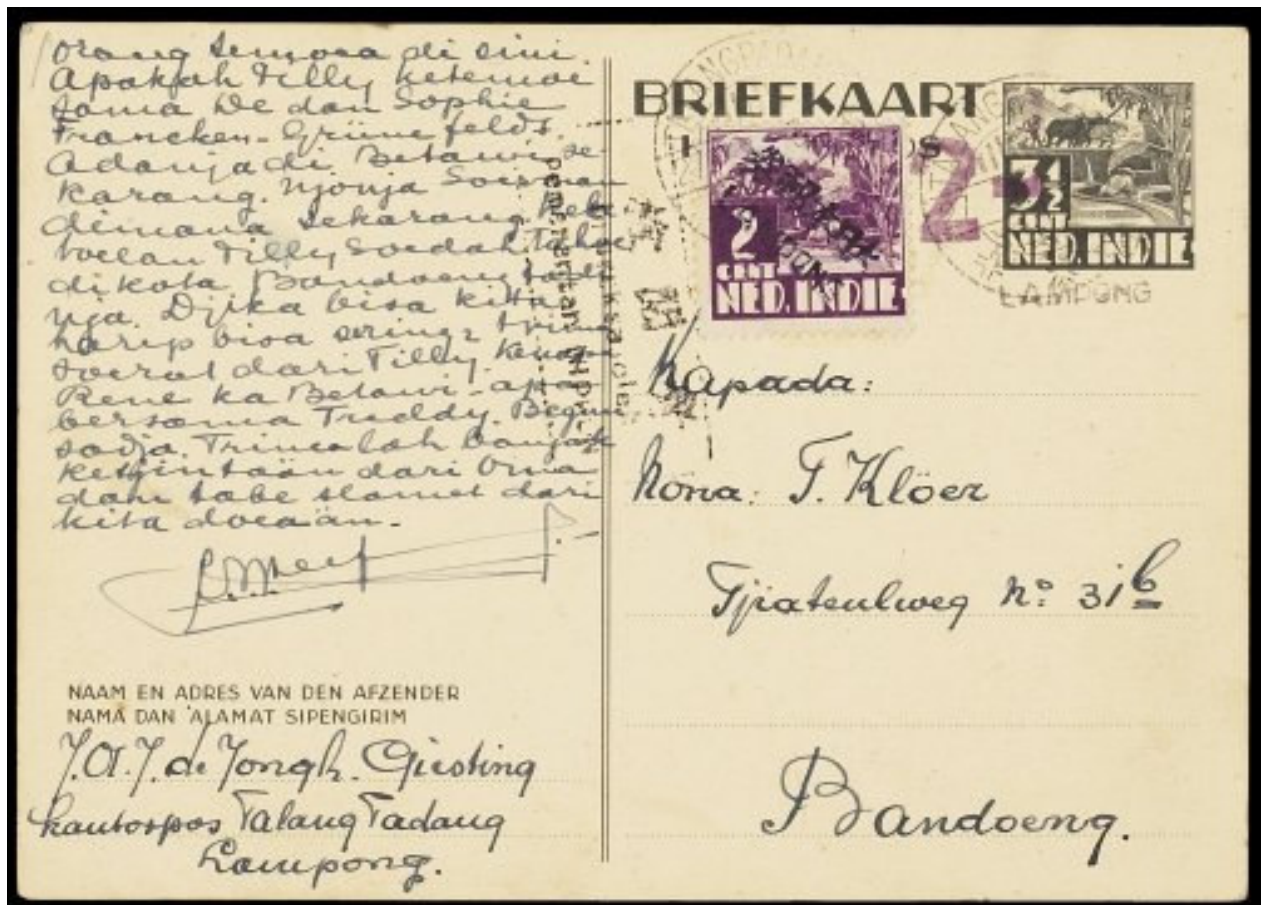 orang semoea di sini.
Apakah Tilly ketemoe
sama De dan Sophie
Francken - Grünefeldt.
Adanja di Betawi se-
karang. Njonja Soesman
dimana sekarang. Kebe-
toelan Tilly Soedah Tahoe
di kota Bandoeng
nja. Djika bisa kita
harep bisa sering2 trima
soerat dari Tilly. Kenapa
Rene ka Betawi - apa
bersama Truddy. Begini
sadja. Trimalah banjak
ketjintaän dari Oma
dan tabe slamet dari
kita doeaän.-
NAAM EN ADRES VAN DEN AFZENDER
NAMA DAN ALAMAT SIPENGIRIM
J.A.J. de Jongh. Giesting
kantorpos Talang Padang
Lampong.
BRIEFKAART
2
CENT
NED. INDIE
2
3½
CENT
NED. INDIE
LAMPONG
Kapada:
Nona: T. Klöer
Tjiateulweg No 31b
Bandoeng.